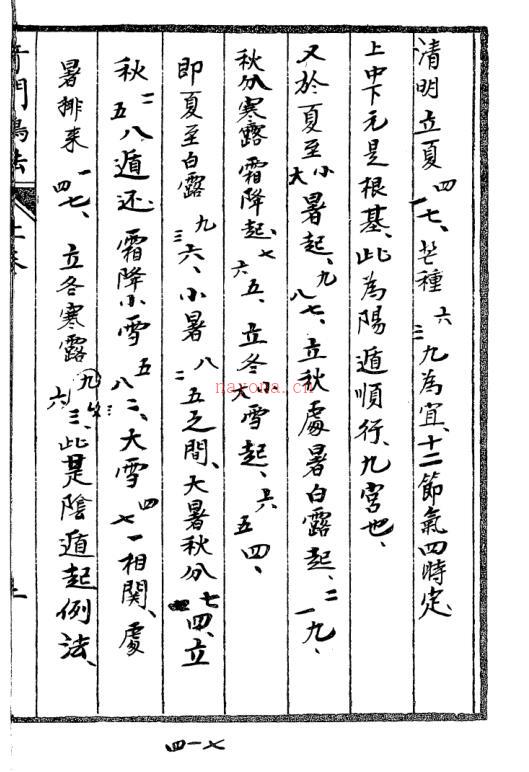 清明立夏四一七、芒種六三九為宜、十二節氣四時定
上中下元是根基、此為陽遁順行、九宮也、
又於夏至小大暑起、九八七、立秋處暑白露起、二一九、
秋分寒露霜降起、七六五、立冬小大雪起、六五四、
即夏至白露九三六、小暑八二五之間、大暑秋分七一四、立
秋二五八遁还霜降小雪五八二、大雪四七一相関、處
暑排来一四七、立冬寒露六九三、此是陰遁起例法、
上
四一七
nayona.cn